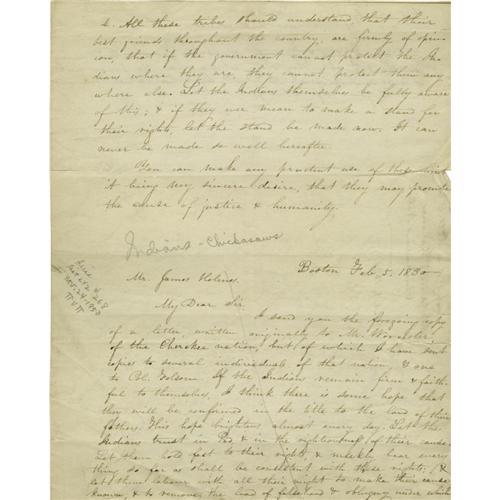 4. All these tribes should understand, that their
best friends throughout the country, are firmly of opin-
ion, that if the government cannot protect the In-
dians where they are, they cannot protect them any
where else. Let the Indians themselves be fully aware
of this; & if they ever mean to make a stand for
their rights, let the stand be made now. It can
never be made so well hereafter.
You can make any prudent use of these hints
it being my sincere desire, that they may promote
the cause of justice & humanity.
Indians - Chickasaws
Boston Feb. 5. 1830
Mr. James Holmes
My Dear Sir,
I send you the foregoing copy
of a letter written originally to Mr. Worcester,
of the Cherokee nation, but of which I have sent
copies to several individuals of that nation & one
to Col. Folsom. If the Indians remain firm & faith-
ful to themselves, I think there is some hope that
they will be confirmed in the title to the land of their
fathers. This hope brightens almost every day. Let the
Indians trust in God, & in the righteousness of their cause.
Let them hold fast to their rights, & meekly bear every
thing so far as shall be consistent with these rights, (&
let them labour with all their might to make their cause
known, & to remove the load of falsehood & obloquy under which